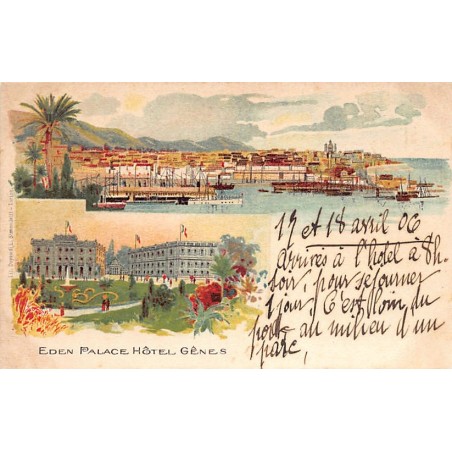 17 et 18 avril 06
Arrivés à l'hôtel à 8h
soir, pour séjourner
1 jour C'est loin du
port au milieu d'un
parc,
EDEN PALACE HÔTEL GÊNES